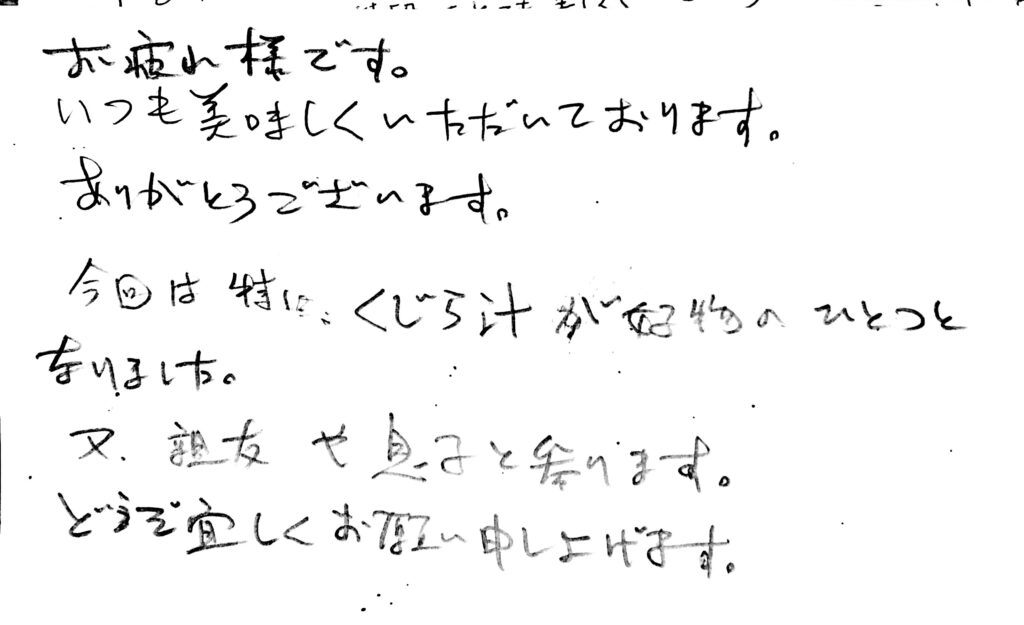 お疲れ様です。
いつも美味しくいただいております。
ありがとうございます。
今回は特に、くじら汁が好物のひとつと
なりました。
又、親友や息子と参ります。
どうぞ宜しくお願い申し上げます。